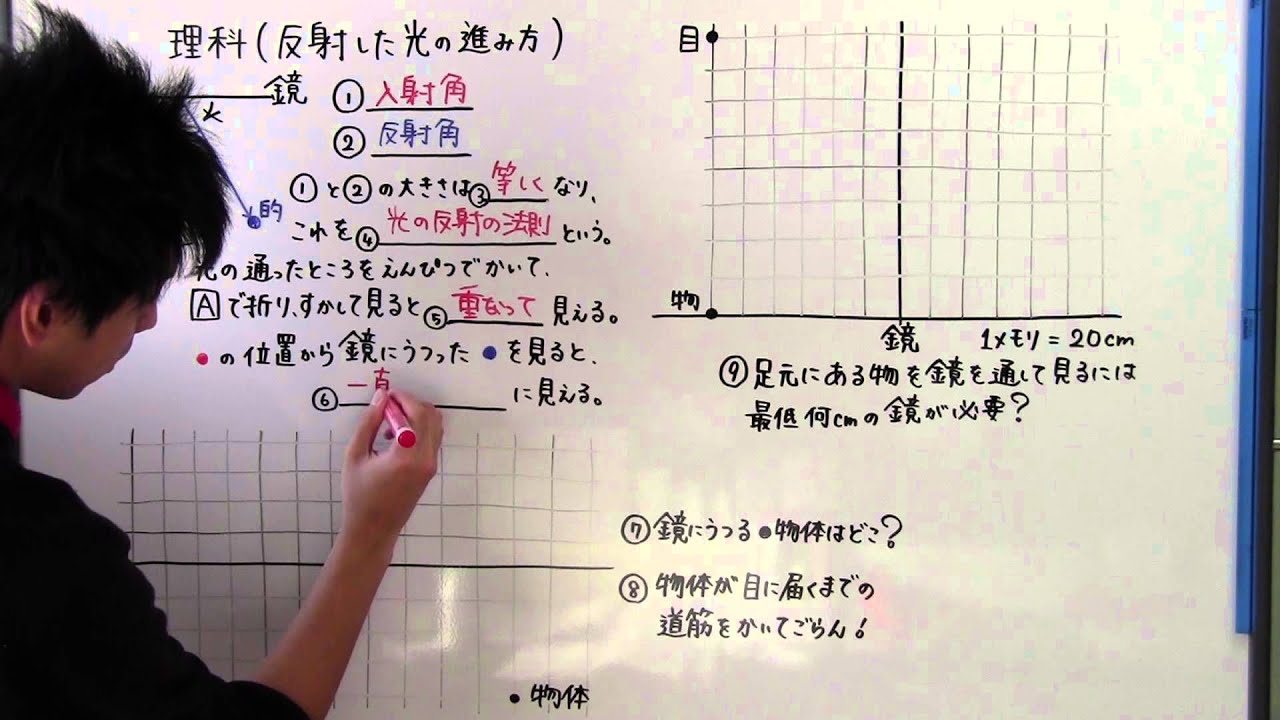 理科(反射した光の進み方)
鏡
① 入射角
② 反射角
①と②の大きさは③等しくなり、
的
これを④光の反射の法則という。
光の通ったところをえんぴつでかいて、
Aで折り、すかして見ると⑤重なって見える。
●の位置から鏡にうつった●を見ると、
⑥一直に見える。
物体
目
物
鏡 1メモリ=20cm
⑨足元にある物を鏡を通して見るには
最低何cmの鏡が必要?
⑦鏡にうつる●物体はどこ?
⑧物体が目に届くまでの
道筋をかいてごらん!